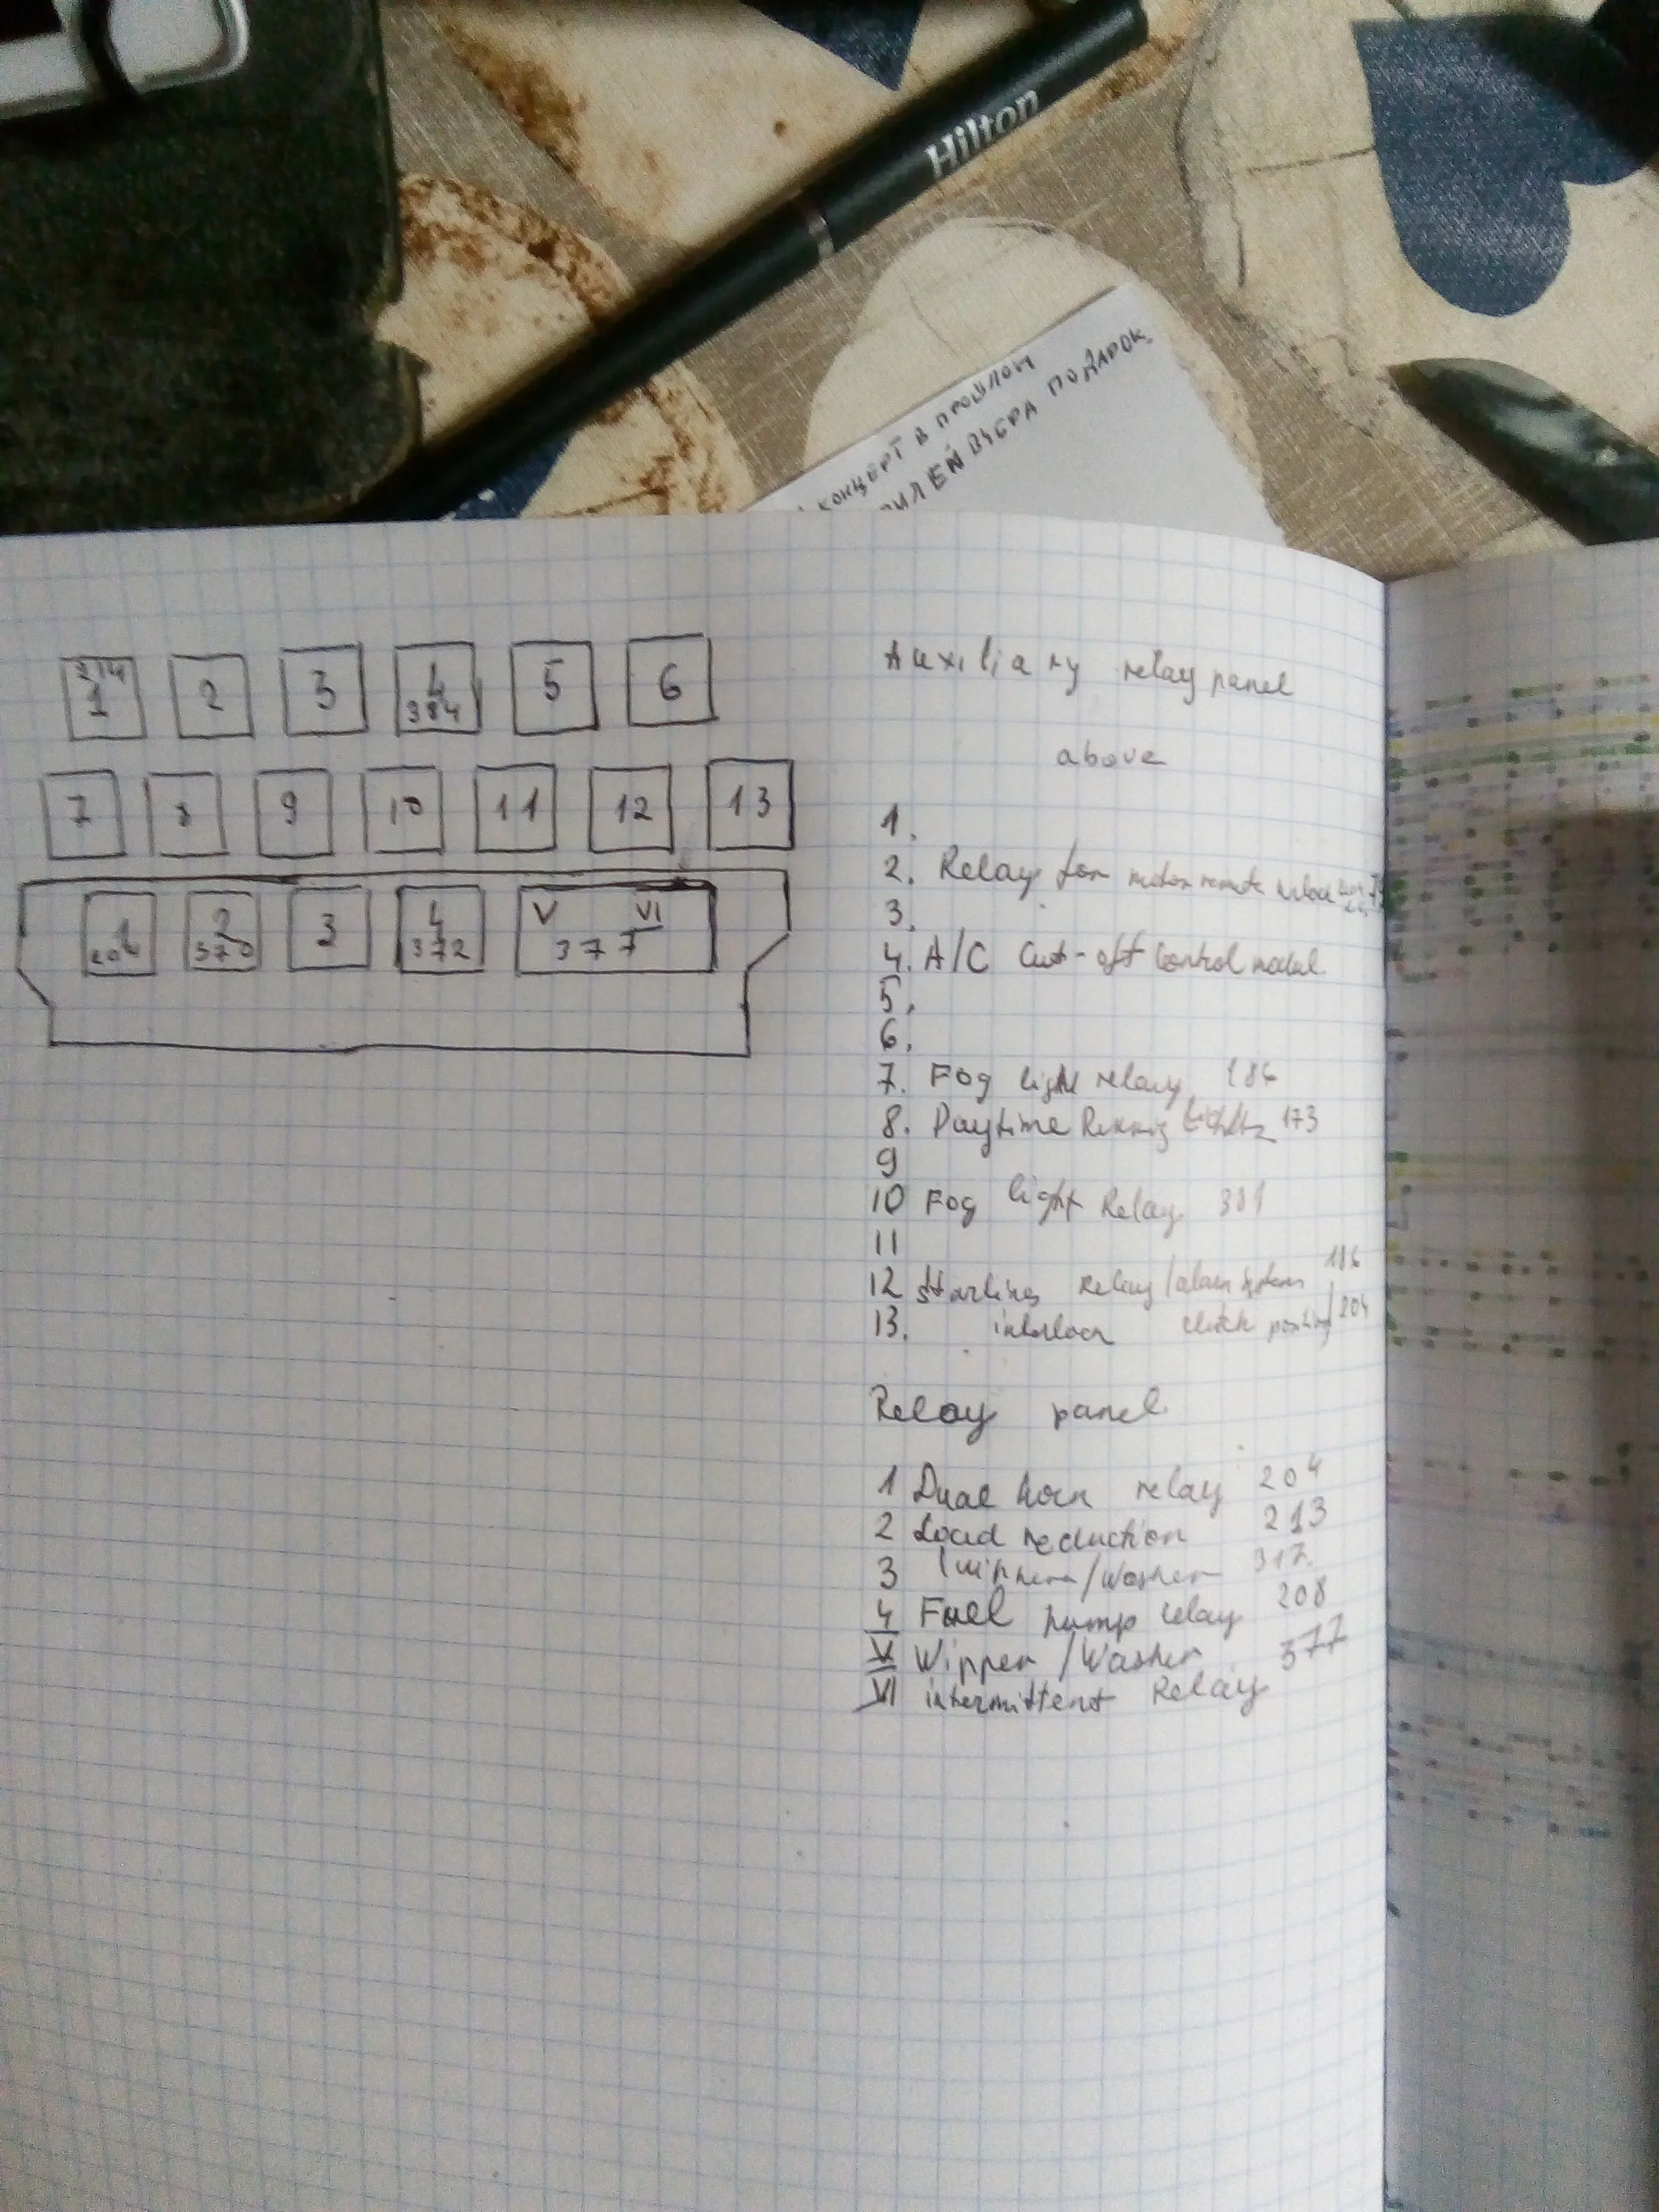 Hilton
КОНЦЕРТ В ПРОШЛОМ
ВЧЕРА ПОДАРОК
214
1
2
3
4
384
5
6
7
8
9
10
11
12
13
1
204
2
370
3
4
372
V VI
377
Auxiliary relay panel
above
1.
2. Relay for motor remote
3.
4. A/C Cut-off Control modul
5.
6.
7. Fog light relay 186
8. Daytime Lights 173
9
10 Fog light Relay 381
11
12 Starting Relay/alarm system 186
13. interlock clutch position 204
Relay panel
1 Dual horn relay 204
2 Load reduction 213
3 /Washer 317.
4 Fuel pump relay 208
V Wipper/Washer 377
VI intermittent Relay